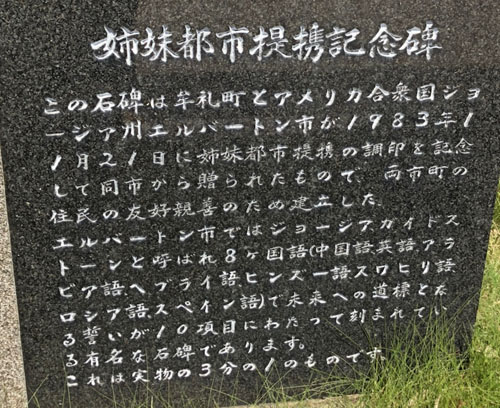 姉妹都市提携記念碑
この石碑は牟礼町とアメリカ合衆国ジョ
ージア州エルバートン市が1983年1
1月21日に姉妹都市提携の調印を記念
して同市から贈られたもので、両市町の
住民の友好親善のため建立した。
エルバートン市ではジョージアガイドス
トーンと呼ばれ8ヶ国語(中国語,英語,アラ
ビア語,ヘブライ語,ヒンズー語,スワヒリ語,
ロシア語,スペイン語)で未来への道標とな
る誓いが10項目にわたって刻まれてい
る有名な石碑であります。
これは実物の3分の1のものです。